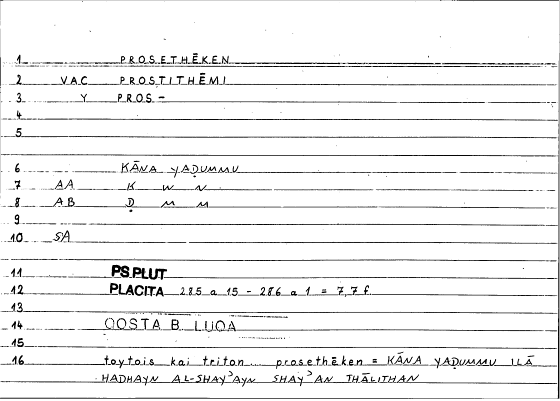 1 PROSETHĒKEN
2 VAC PROSTITHĒMI
3 Y PROS-
4
5
6 KĀNA YAḌUMMU
7 AA K W N
8 AB Ḍ M M
9
10 SA
11 PS.PLUT
12 PLACITA 285 a 15 - 286 a 1 = 7,7 f.
13
14 QOSTA B. LUQA
15
16 toytois kai triton prosethēken = KĀNA YAḌUMMU ILĀ
HADHAYN AL-SHAYʾAYN SHAYʾAN THĀLITHAN